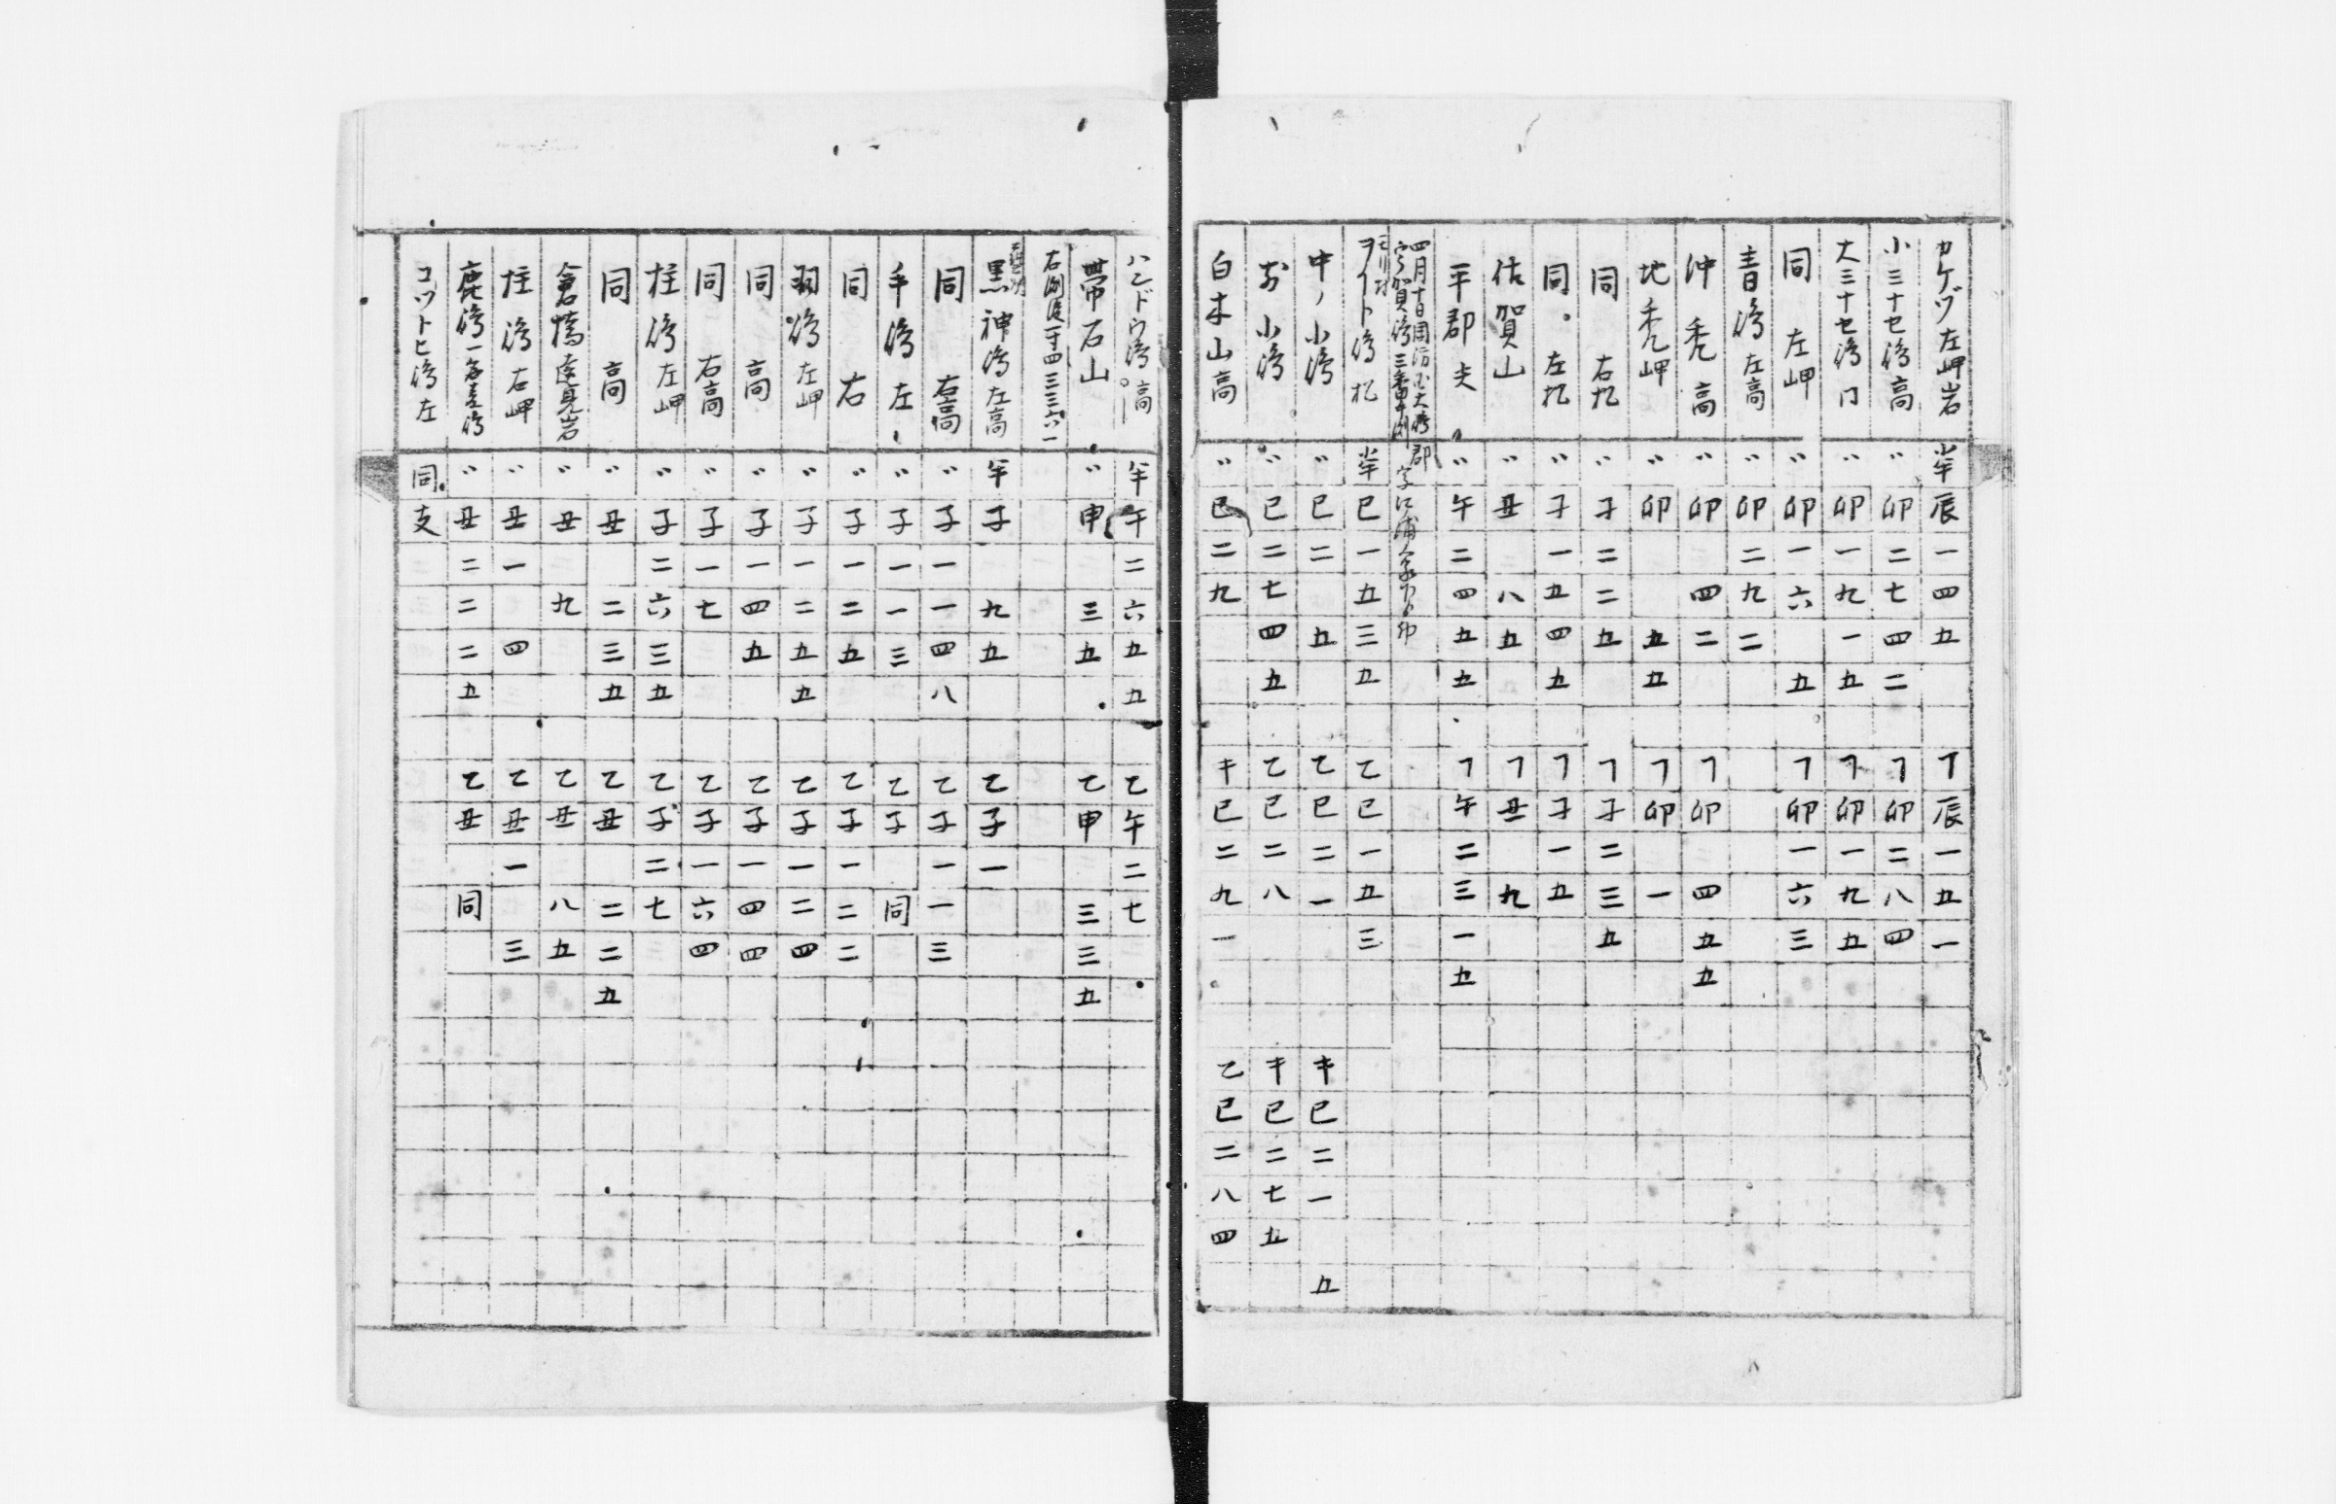 カケヅ左岬岩 半 辰一四五 丁辰一五一
小三十七嶋高 〃 卯二七四二 丁卯二八四
大三十七嶋 〃 卯一九一五 丁卯一九五
同 左岬 〃 卯一六 五 丁卯一六三
青嶋左高 〃 卯二九二
沖禿高 〃 卯 四二 丁卯 四五五
地禿岬 〃 卯 五五 丁卯 一
同 右 〃 子二二五 丁子二三五
同 左 〃 子一五四五 丁子一五
佐賀山 〃 丑 八五 丁丑 九
平郡 〃 午二四五五 丁午二三一五
四月十日周防国大嶋郡
ヲート嶋 半 巳一五三五 乙巳一五三
中ノ小嶋 〃 巳二 五 乙巳二一 キ巳二一 五
小嶋 〃 巳二七四五 乙巳二八 キ巳二七五
白木山高 〃 巳二九 キ巳二九一 乙巳二八四
ハンドウ嶋高 半 午二六五五 乙午二七
帯石山 〃 申 三五 乙申 三三五
右測 四三三六一
黒神嶋左高 半 子 九五 乙子一
同 右高 〃 子一一四八 乙子一一三
手嶋左 〃 子一一三 乙子 同
同 右 〃 子一二五 乙子一二二
羽嶋左岬 〃 子一二五五 乙子一二四
同 高 〃 子一四五 乙子一四四
同 右高 〃 子一七 乙子一六四
柱嶋左岬 〃 子二六三五 乙子二七
同 高 〃 丑 二三五 乙丑 二二五
倉橋 見岩 〃 丑 九 乙丑 八五
柱嶋右岬 〃 丑一 四 乙丑一 三
鹿嶋 〃 丑二二二五 乙丑 同
コツトヒ嶋左 同支